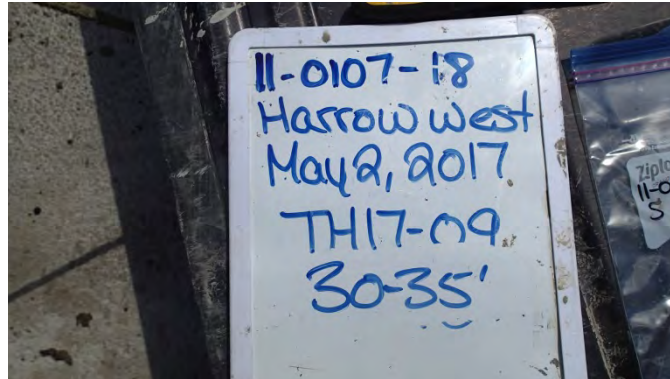 11-0107-18
Harrow West
May 2, 2017
TH17-09
30-35'
Ziploc
11-0
S